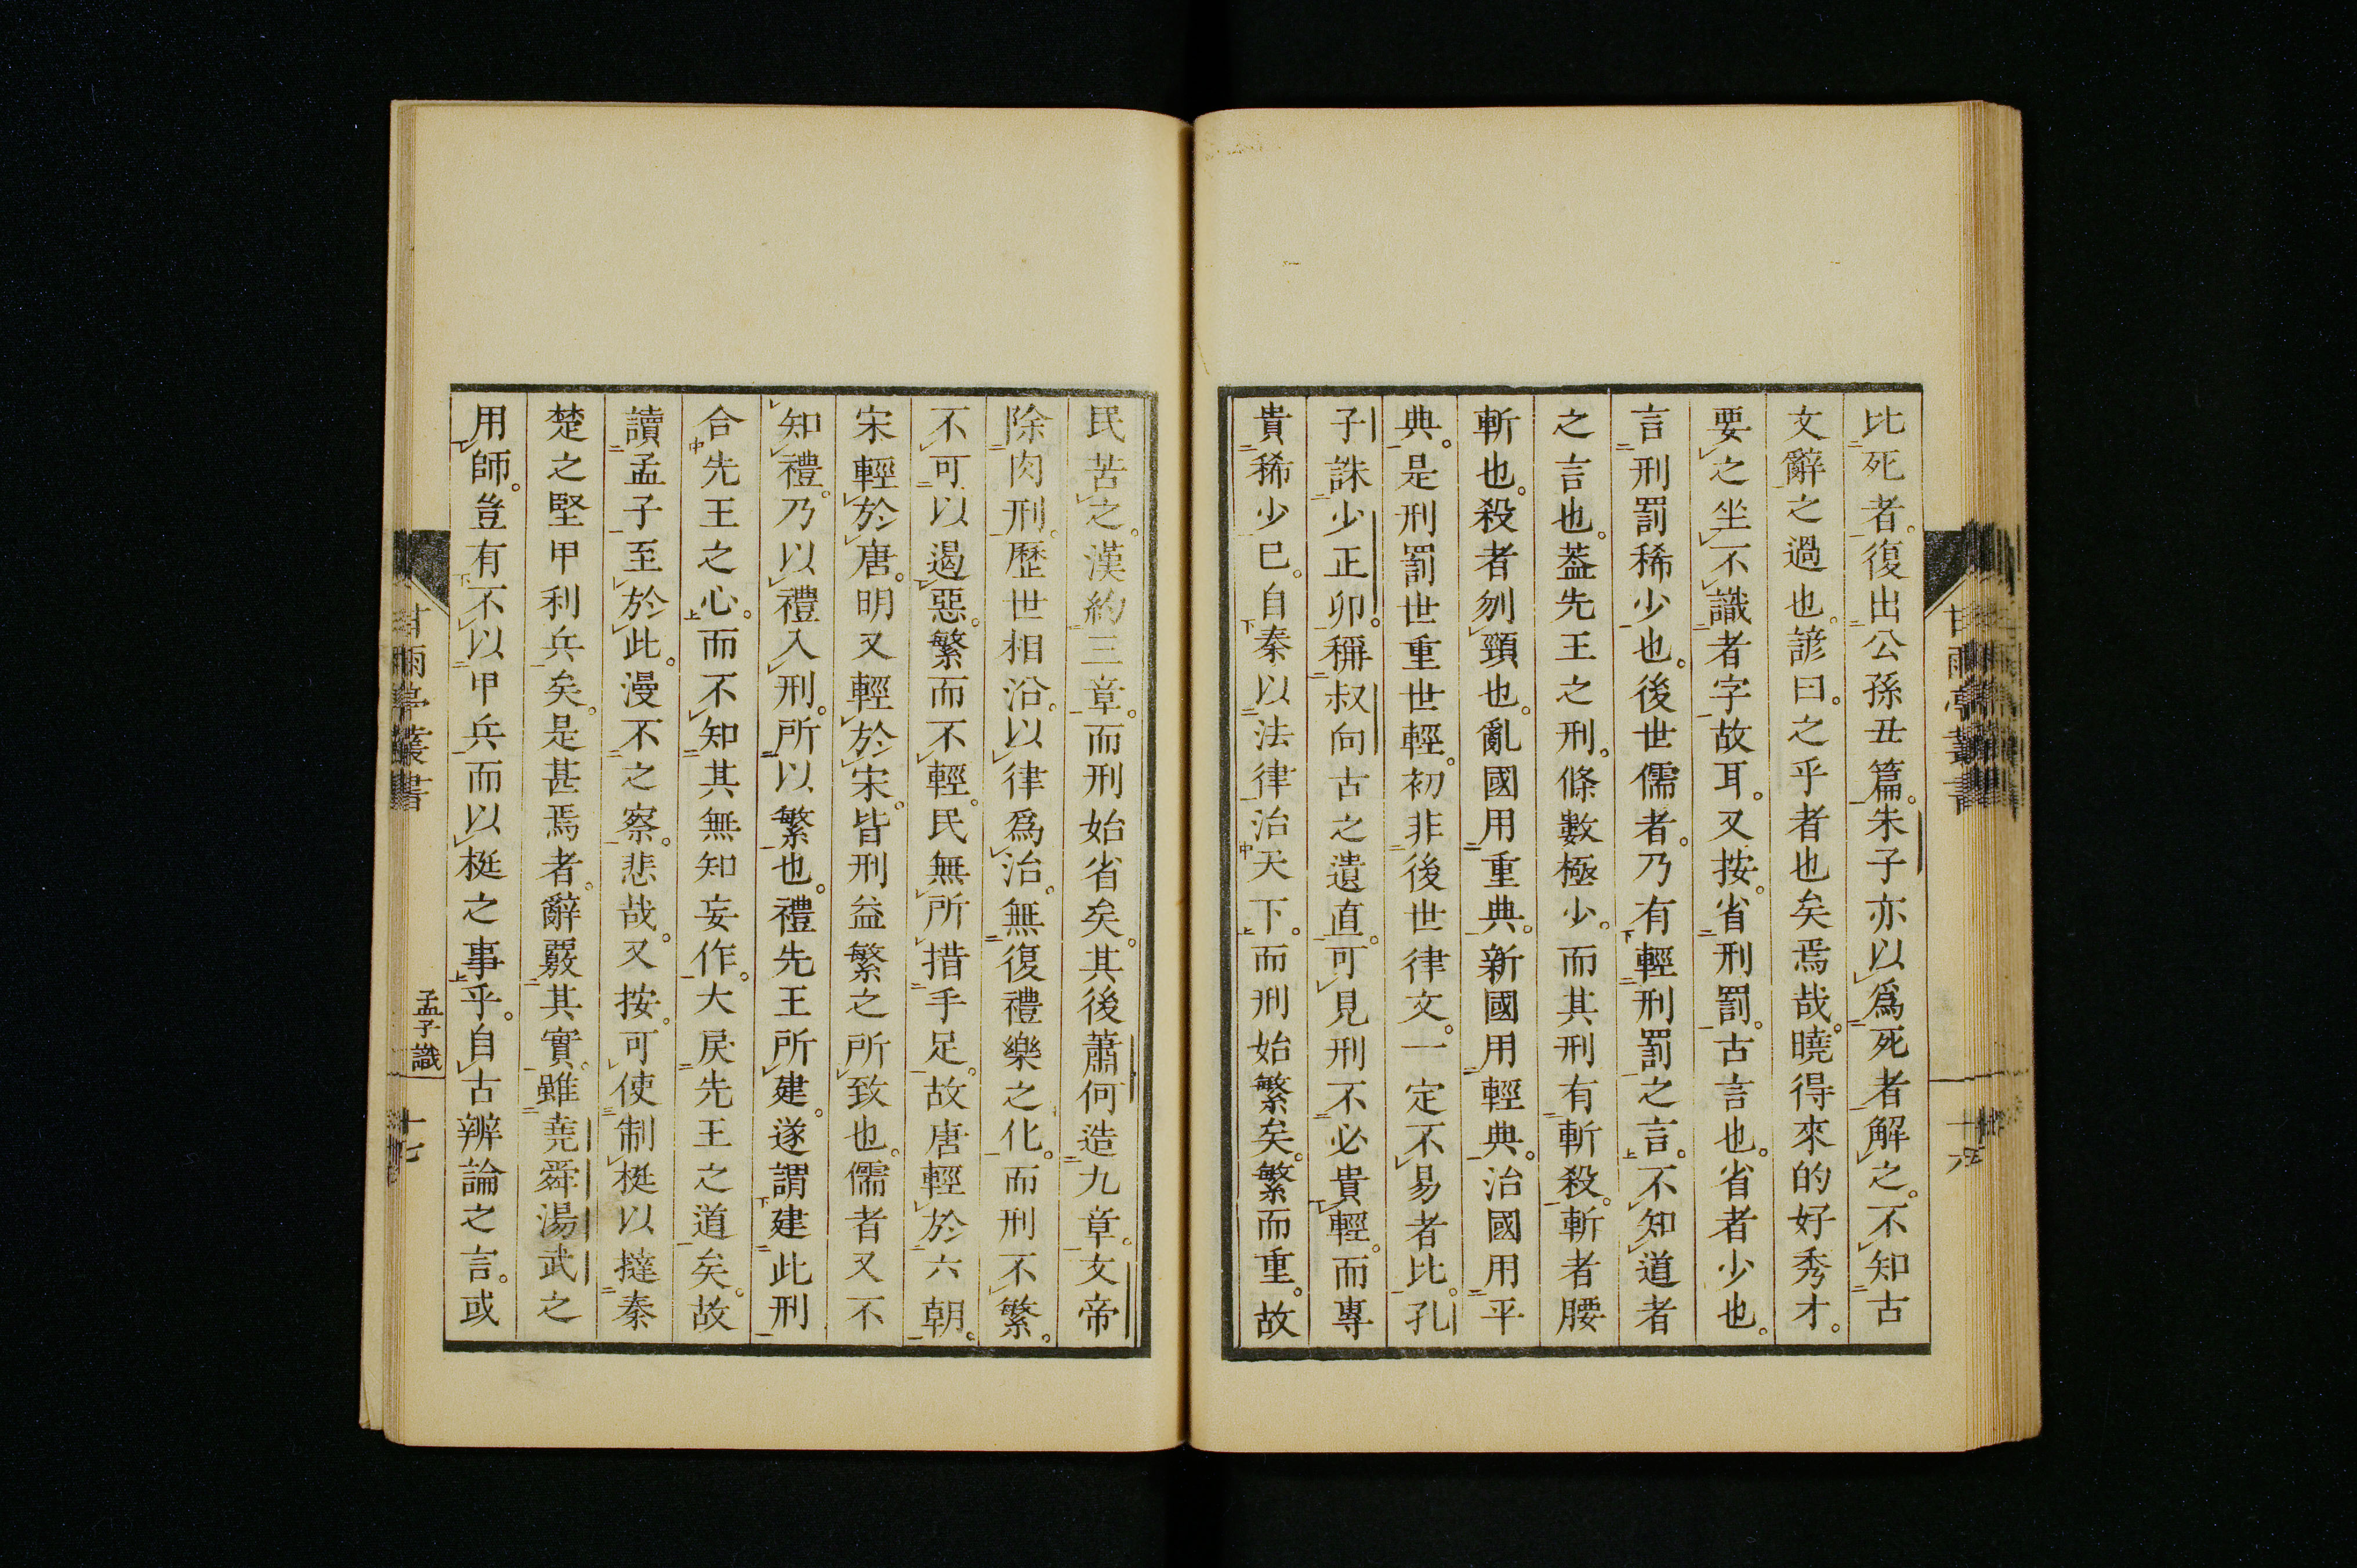 比死者。復出公孫丑篇。朱子亦以爲死者解之。不知古
文辭之過也。諺曰。之乎者也矣焉哉。曉得來的好秀才。
要之坐不識者字故耳。又按。省刑罰。古言也。省者少也。
言刑罰稀少也。後世儒者。乃有輕刑罰之言。不知道者
之言也。蓋先王之刑。條數極少。而其刑有斬殺。斬者腰
斬也。殺者刎頸也。亂國用重典。新國用輕典。治國用平
典。是刑罰世重世輕。初非後世律文。一定不易者比。孔
子誅少正卯。稱叔向古之遺直。可見刑不必貴輕。而專
貴稀少已。自秦以法律治天下。而刑始繁矣。繁而重。故
民苦之。漢約三章。而刑始省矣。其後蕭何造九章。文帝
除肉刑。歷世相沿。以律爲治。無復禮樂之化。而刑不繁。
不可以遏惡。繁而不輕。民無所措手足。故唐輕於六朝。
宋輕於唐。明又輕於宋。皆刑益繁之所致也。儒者又不
知禮。乃以禮入刑。所以繁也。禮先王所建。遂謂建此刑
合先王之心。而不知其無知妄作。大戾先王之道矣。故
讀孟子至於此。漫不之察。悲哉。又按。可使制梃以撻秦
楚之堅甲利兵矣。是甚焉者。辭覈其實。雖堯舜湯武之
用師。豈有不以甲兵而以梃之事乎。自古辨論之言。或
甘雨亭叢書
孟子識
十七